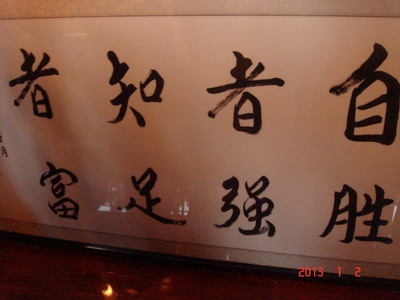 自胜
者强
知足
者富
2013 1 2